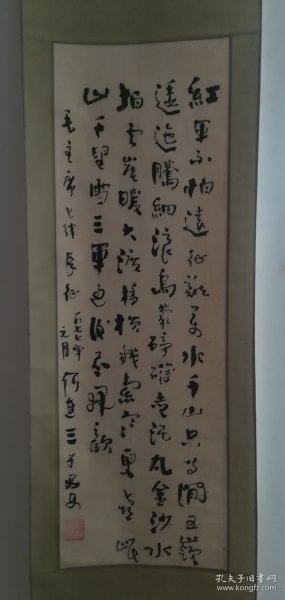 紅軍不怕遠征難万水千山只等閒五嶺
逶迤騰細浪烏蒙磅礴走泥丸金沙水
拍云崖暖大渡橋横鐵索寒更喜岷
山千里雪三軍过後尽開顔
毛主席七律長征
一九七七年
元月
三于西安
孔夫子旧书网
www.kongfz.com